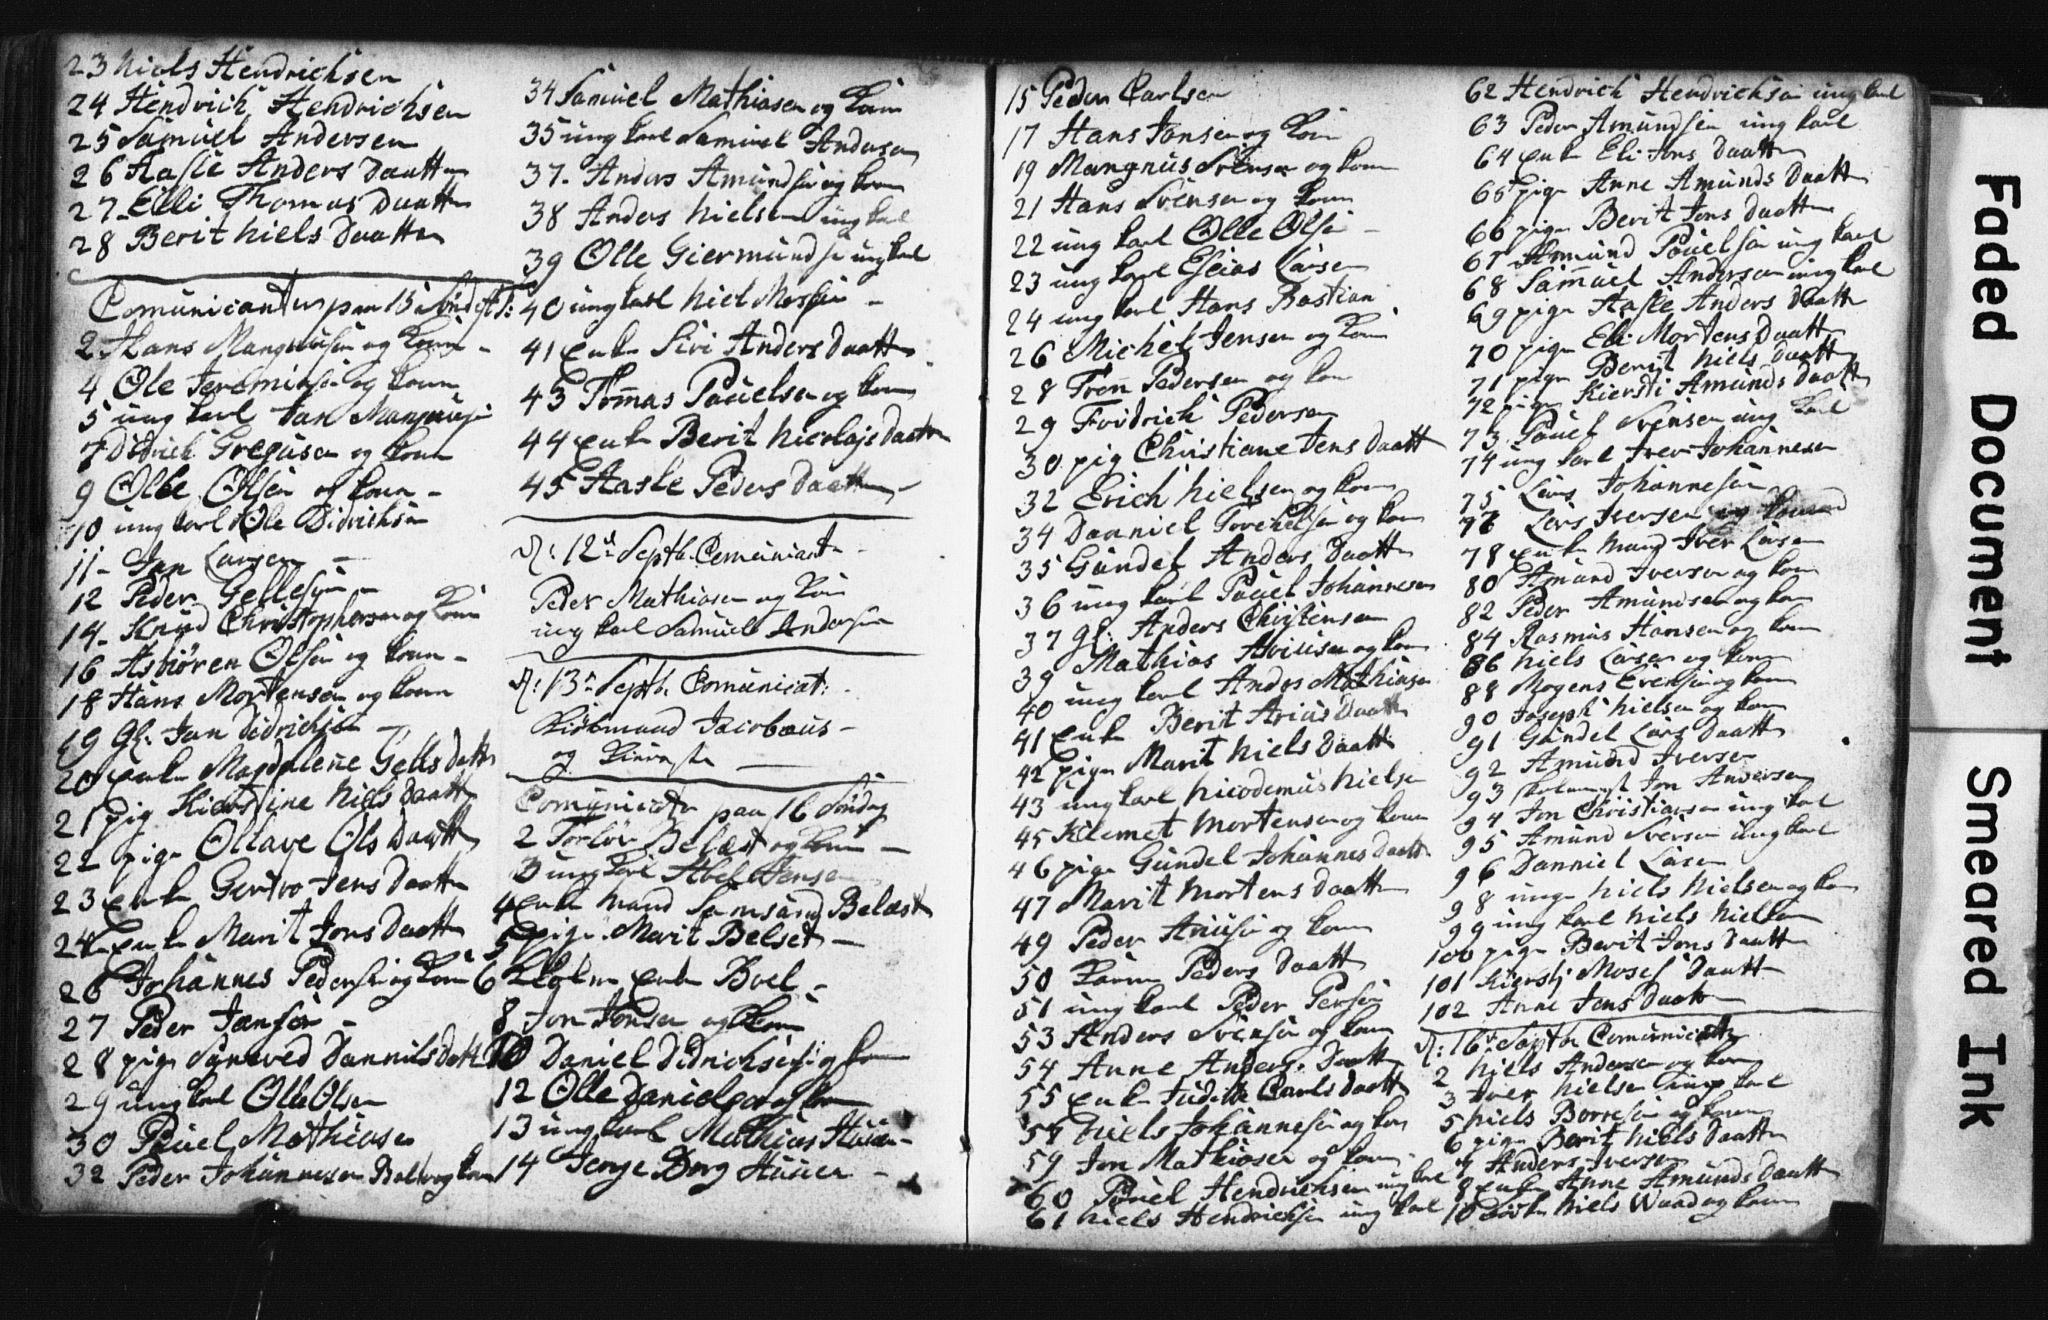 23 Niels Hendrichsen
24 Hendrich Hendrichsen
25 Samuel Andersen
26 Aasle Anders Daatter
27 Elli Thomas Daatter
28 Berit Niels Daatter
Comunicanter paa 15
2 Hans Mangnusen og Konn
4 Ole Jeremiasen og konn
5 ung karl Jan Mangnusen
7 Didrich Gregusen og konn
9 Olle Olsen og konn
10 ung karl Ole Didrichsen
11 Jan Larsen
12 Peder Gellesen
14 Knud Christophersen og Konn
16 Asbiøren Olsen og konn
18 Hans Mortensen og konn
19 Gl: Jan Didrichsen
20 Enke Magdalene Gells Datter
21 pig Kierstine Niels Daatter
22 pige Oltave Ols Daatter
23 Enke Gertro Jens Daatter
24 Enke Marit Jons Daatter
26 Johannes Pedersen og Konn
27 Peder Jansen
28 pige Synneved Dannils Datter
29 ung karl Olle Olsen
30 Pauel Mathiasen
32 Peder Johannesen og konn
34 Samuel Mathiasen og Konn
35 ung karl Samuel Andersen
37 Anders Amundsen og konn
38 Anders Nielsen ung karl
39 Olle Giermundsen ung karl
40 ung karl Niel Mossen
41 Enke Siri Anders Daatter
43 Tomas Pauelsen og konn
44 Enke Berit Nicolajs Daatter
45 Aasle Peders Daatter
d: 12te Septb. Comuniant
Peder Mathiasen og Kon
ung karl Samuel Andersen
d: 13de Septb. Comunicat:
Jacobæus
og Kiereste
Comunicater paa 16 Søndag
2 Torlov Belæst og Konn
3 ung karl Abel Jensen
4 Enke Mand Samsung Belæst
5 pige Marit Belset
6 Enke Boel
8 Jon Jonsen og Konn
10 Daniel Didrichsen og konn
12 Olle Danielsen og konn
13 ung karl Mathias
14 Jense Borg
15 Peder Carlsen
17 Hans Jonsen og Konn
19 Mangnus Svensen og konn
21 Hans Svensen og konn
22 ung karl Olle Olsen
23 ung karl Eseias Larsen
24 ung karl Hans Bastian
26 Michel Jensen og Konn
28 Tron Pedersen og kon
29 Fridrich Pedersen
30 pig Christiane Jens Daatter
32 Erich Nielsen og konn
34 Danniel Torchelsen og konn
35 Gundel Anders Daatter
36 ung karl Pauel Johannesen
37 Gl: Anders Christensen
39 Mathias Ariusen og kon
40 ung karl Anders Mathiasen
41 Enke Berit Arius Daatter
42 pige Marit Niels Daatter
43 ung karl Nicodemus Nielsen
45 Klemet Mortensen og konn
46 pige Gundel Johannes Daatter
47 Marit Mortens Daatter
49 Peder Ariusen og konn
50 Karen Peders Daatter
51 ung karl Peder Persen
53 Anders Svensen og konn
54 Anne Anders Daatter
55 Enke Judithe Carls Daatter
57 Niels Johannesen og kon
59 Jon Mathiasen og konn
60 Pauel Hendrichsen ung karl
61 Niels Hendrichsen ung karl
62 Hendrich Hendrichsen ung karl
63 Peder Amundsen ung karl
64 Enke Eli Jons Daatter
65 pige Anne Amunds Daatter
66 pige Berit Jons Daatter
67 Amund Pauelsen ung karl
68 Samuel Andersen ung karl
69 pige Aasle Anders Daatter
70 pige Eli Mortens Daatter
71 pige Berit Niels Daatter
72 pige Kiersti Amunds Daatter
73 Pauel Svensen ung karl
74 ung karl Iver Johannesen
75 Lars Johannesen
77 Lars Iversen og
78 Enke Mand Iver Larsen
80 Amund Iversen og kon
82 Peder Amundsen og kon
84 Rasmus Hansen og konn
86 Niels Larsen og konn
88 Mogens Evensen og konn
90 Joseph Nielsen og konn
91 Gundel Lars Daatter
92 Amund Iversen
93 Jon Andersen
94 Jon Christiansen ung karl
95 Amund Iversen ung karl
96 Danniel Larsen
98 unge Niels Nielsen og kon
99 ung karl Niels Nielsen
100 pige Berit Jons Daatter
101 Kiersti Moses Daatter
102 Anne Jens Daatter
d: 16de Septb. Comunicater
2 Niels Andersen og konn
3 Iver Nielsen ung karl
5 Niels Borresen og konn
6 pige Berit Niels Daatter
7 Anders Iversen
8 Enke Anne Amunds Daatter
10 Niels Waad og konn
Faded Document
Smeared Ink